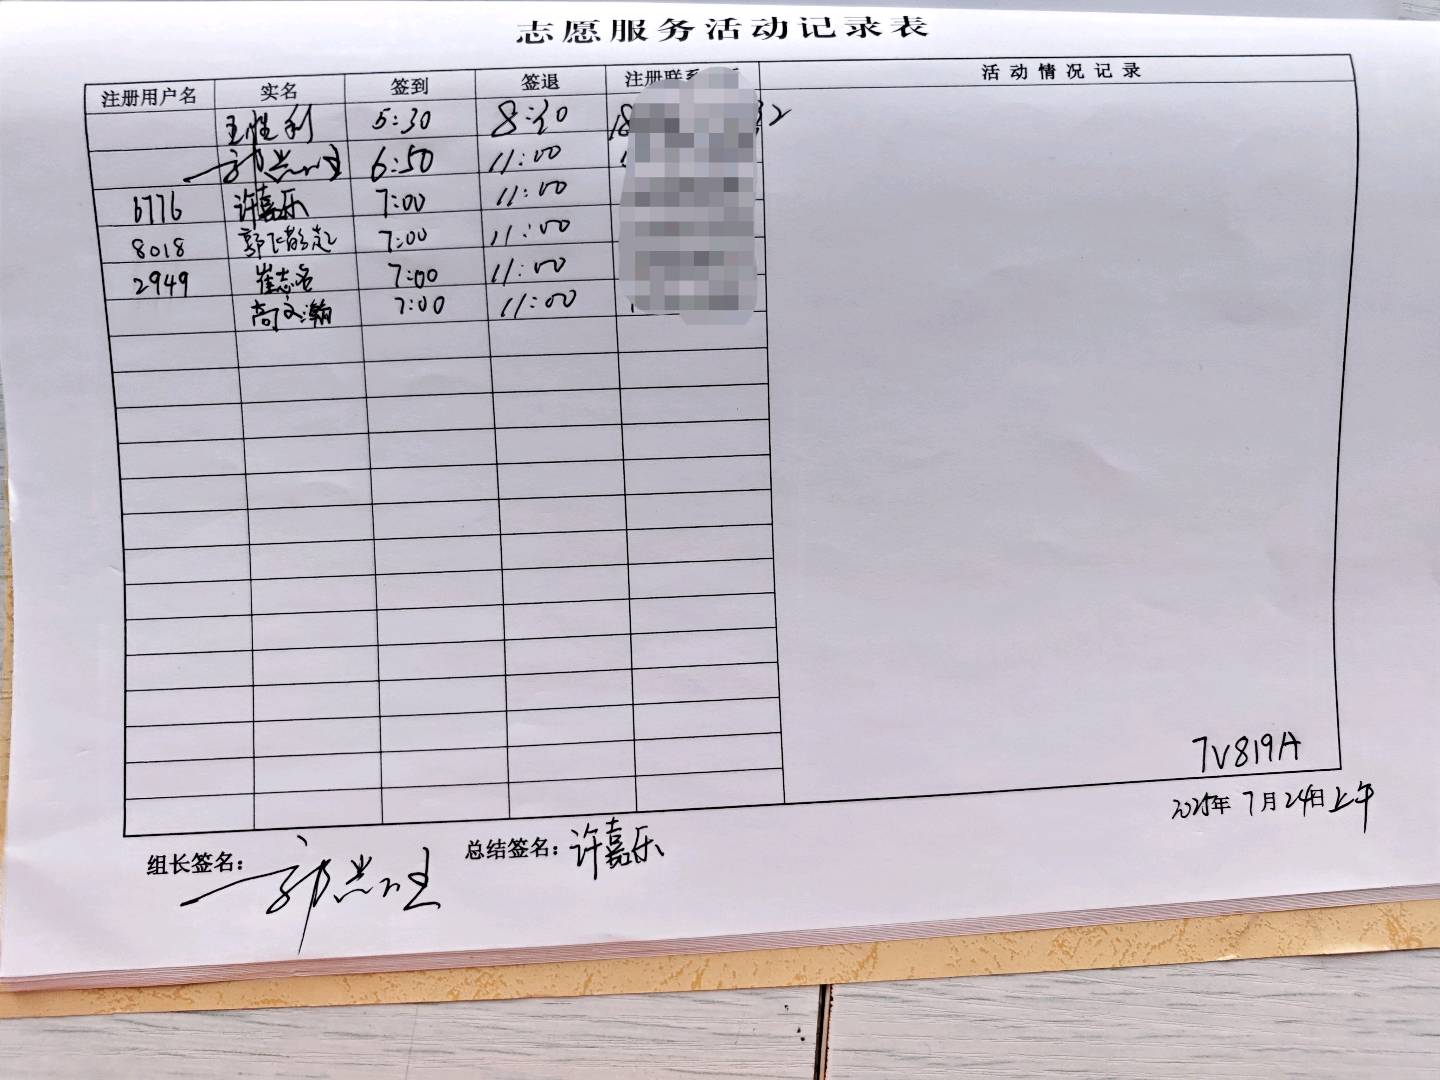 志愿服务活动记录表
注册用户名 实名 签到 签退 注册联系 活动情况记录
王胜利 5:30 8:30 18 32
郭 6:50 11:00
6776 许嘉乐 7:00 11:00
8018 郭 7:00 11:00
2949 崔志名 7:00 11:00
高文瀚 7:00 11:00
7V819A
2025年 7月24日上午
组长签名: 郭 总结签名: 许嘉乐